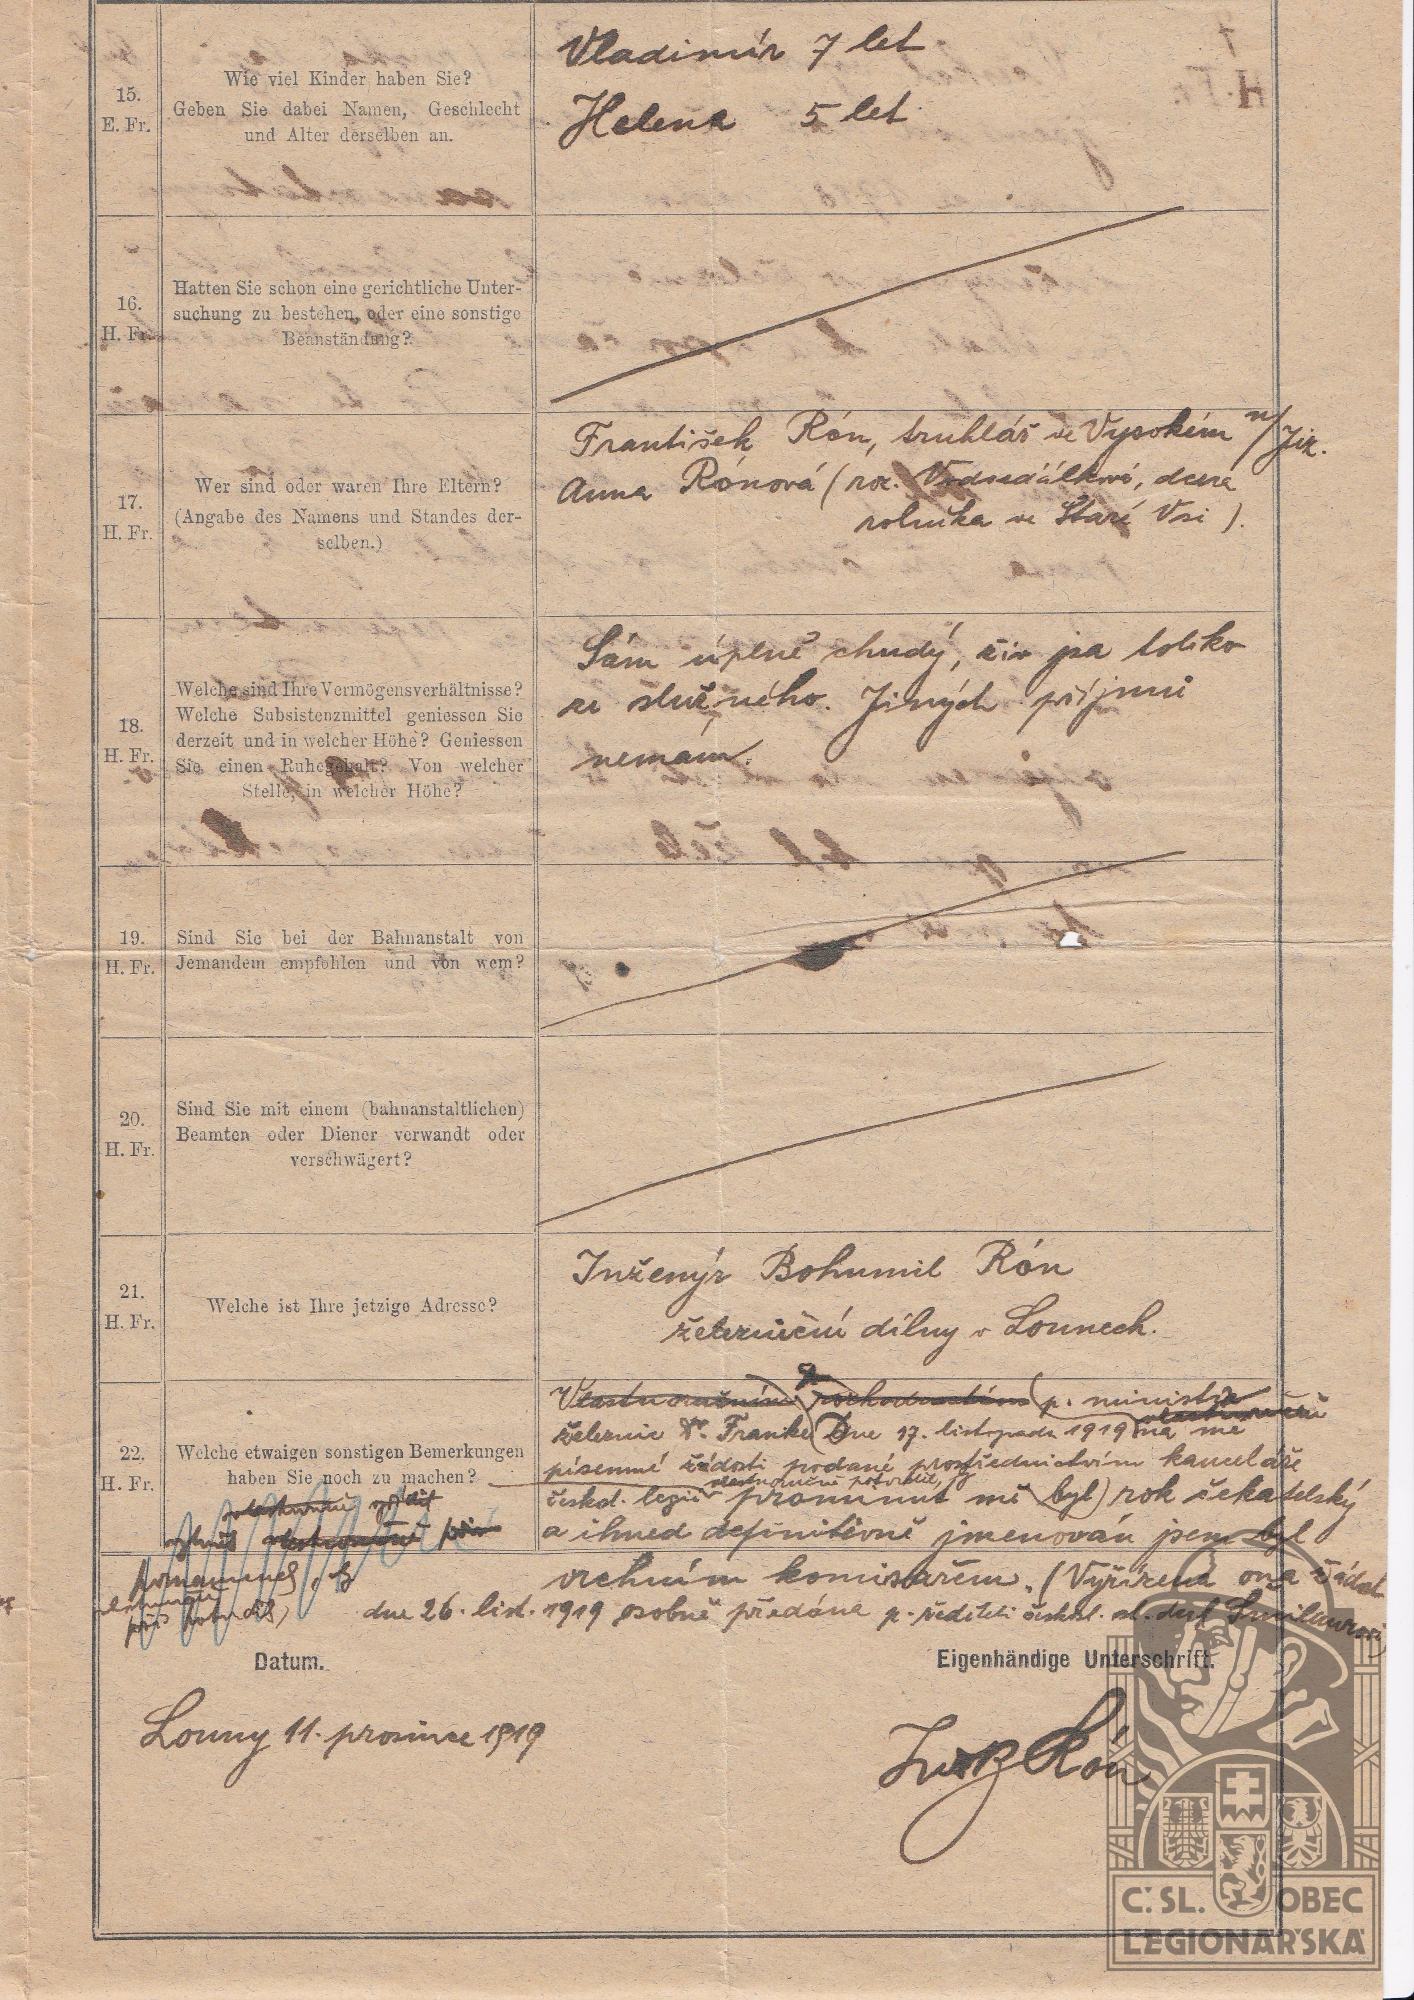 15.
E. Fr.
Wie viel Kinder haben Sie?
Geben Sie dabei Namen, Geschlecht
und Alter derselben an.
Vladimír 7 let
Helena 5 let
16.
H. Fr.
Hatten Sie schon eine gerichtliche Unter-
suchung zu bestehen, oder eine sonstige
Beanständung?
17.
H. Fr.
Wer sind oder waren Ihre Eltern?
(Angabe des Namens und Standes der-
selben.)
František Rón, truhlář ve Vysokém n/Jiz.
Anna Rónová (roz. Vodsedálková, dcera
rolníka ve Staré Vsi).
18.
H. Fr.
Welche sind Ihre Vermögensverhältnisse?
Welche Subsistenzmittel geniessen Sie
derzeit und in welcher Höhe? Geniessen
Sie einen Ruhegehalt? Von welcher
Stelle, in welcher Höhe?
Sám úplně chudý, živ jsa toliko
ze služného. Jiných příjmů
nemám.
19.
H. Fr.
Sind Sie bei der Bahnanstalt von
Jemandem empfohlen und von wem?
20.
H. Fr.
Sind Sie mit einem (bahnanstaltlichen)
Beamten oder Diener verwandt oder
verschwägert?
21.
H. Fr.
Welche ist Ihre jetzige Adresse?
Inženýr Bohumil Rón
železniční dílny v Lounech.
22.
H. Fr.
Welche etwaigen sonstigen Bemerkungen
haben Sie noch zu machen?
Vlastnoručním rozhodnutím p. ministra
železnic Dr. Franke Dne 17. listopadu 1919 na mé
písemné žádosti podané prostřednictvím kanceláře
českosl. legií prominut mě byl) rok čekatelský
a ihned definitivně jmenován jsem byl
vrchním komisařem. (Vyřízená ona žádost
dne 26. list. 1919 osobně předána p. řediteli českosl. st. drah
Datum.
Eigenhändige Unterschrift.
Louny 11. prosince 1919
Rón
Č.SL. OBEC
LEGIONÁŘSKÁ